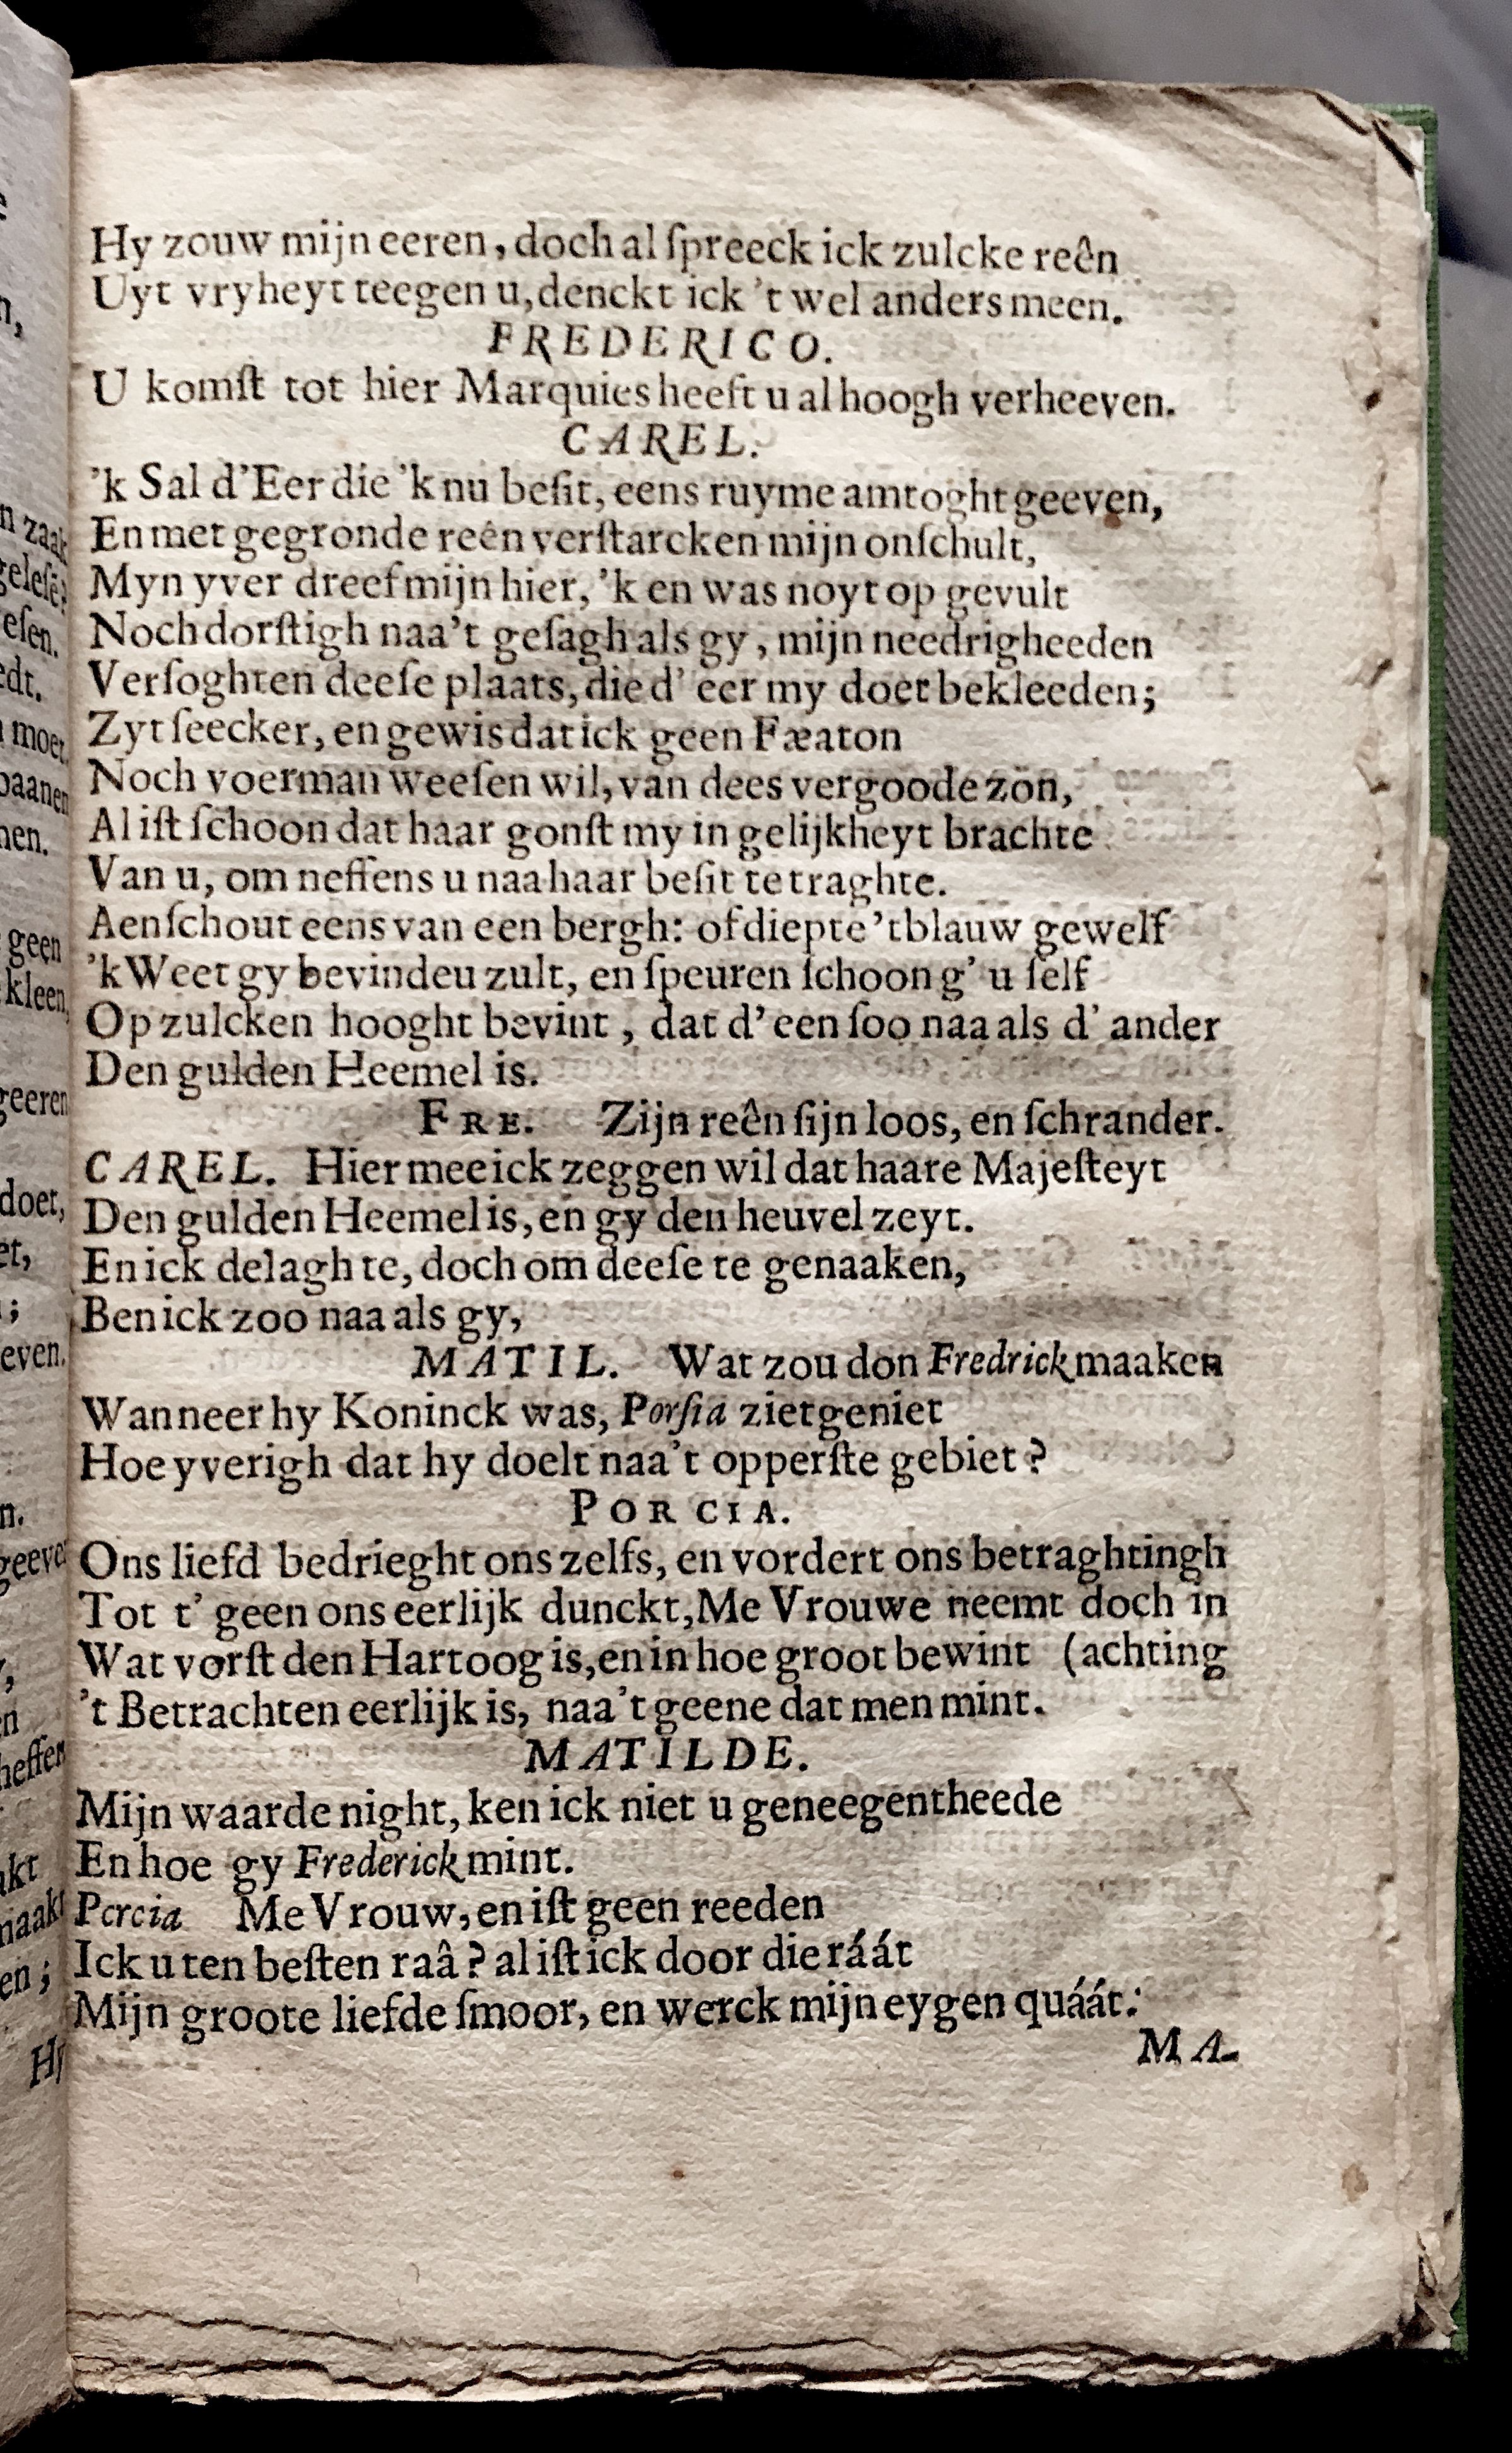 Hy zouw mijn eeren, doch al ſpreeck ick zulcke reên
Uyt vryheyt teegen u, denckt ick 't wel anders meen.
FREDERICO.
U komſt tot hier Marquies heeft u al hoogh verheeven.
CAREL.
'k Sal d'Eer die 'k nu beſit, eens ruyme amtoght geeven,
En met gegronde reên verſtarcken mijn onſchult,
Myn yver dreef mijn hier, 'k en was noyt op gevult
Noch dorſtigh naa't geſagh als gy, mijn needrigheeden
Verſoghten deeſe plaats, die d' eer my doet bekleeden;
Zyt ſeecker, en gewis dat ick geen Fæaton
Noch voerman weeſen wil, van dees vergoode zon,
Al iſt ſchoon dat haar gonſt my in gelijkheyt brachte
Van u, om neffens u naa haar beſit te traghte.
Aenſchout eens van een bergh: of diepte 't blauw gewelf
'k Weet gy bevindeu zult, en ſpeuren ſchoon g' u ſelf
Op zulcken hooght bevint, dat d' een ſoo naa als d' ander
Den gulden Heemel is.
FRE. Zijn reên ſijn loos, en ſchrander.
CAREL. Hier mee ick zeggen wil dat haare Majeſteyt
Den gulden Heemel is, en gy den heuvel zeyt.
En ick de laghte, doch om deeſe te genaaken,
Ben ick zoo naa als gy,
MATIL. Wat zou don Fredrick maaken
Wanneer hy Koninck was, Porſia ziet geniet
Hoe yverigh dat hy doelt naa't opperſte gebiet?
PORCIA.
Ons liefd bedrieght ons zelfs, en vordert ons betraghtingh
Tot t' geen ons eerlijk dunckt, Me Vrouwe neemt doch in
Wat vorſt den Hartoog is, en in hoe groot bewint (achting
't Betrachten eerlijk is, naa't geene dat men mint.
MATILDE.
Mijn waarde night, ken ick niet u geneegentheede
En hoe gy Frederick mint.
Porcia Me Vrouw, en iſt geen reeden
Ick u ten beſten raâ? al iſt ick door die ráát
Mijn groote liefde ſmoor, en werck mijn eygen quáát:
MA-